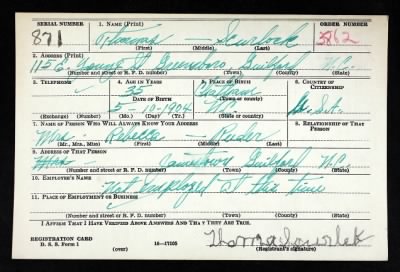 SERIAL NUMBER 1. NAME (Print) ORDER NUMBER
871 Thomas — Scurlock 3862
(First) (Middle) (Last)
2. ADDRESS (Print)
1156 St Greensboro Guilford N.C.
(Number and street or R. F. D. number) (Town) (County) (State)
3. TELEPHONE 4. AGE IN YEARS 5. PLACE OF BIRTH 6. COUNTRY OF CITIZENSHIP
35 Chatham
DATE OF BIRTH (Town or county)
5-10-1904 N.C. U.S.A.
(Exchange) (Number) (Mo.) (Day) (Yr.) (State or country)
7. NAME OF PERSON WHO WILL ALWAYS KNOW YOUR ADDRESS 8. RELATIONSHIP OF THAT PERSON
Mrs — Rebecca —
(Mr., Mrs., Miss) (First) (Middle) (Last)
9. ADDRESS OF THAT PERSON
Jamestown Guilford N.C.
(Number and street or R. F. D. number) (Town) (County) (State)
10. EMPLOYER'S NAME
Not Employed at this time
11. PLACE OF EMPLOYMENT OR BUSINESS
(Number and street or R. F. D. number) (Town) (County) (State)
I AFFIRM THAT I HAVE VERIFIED ABOVE ANSWERS AND THAT THEY ARE TRUE.
REGISTRATION CARD
D. S. S. Form 1 (over) 16—17105 (Registrant's signature)